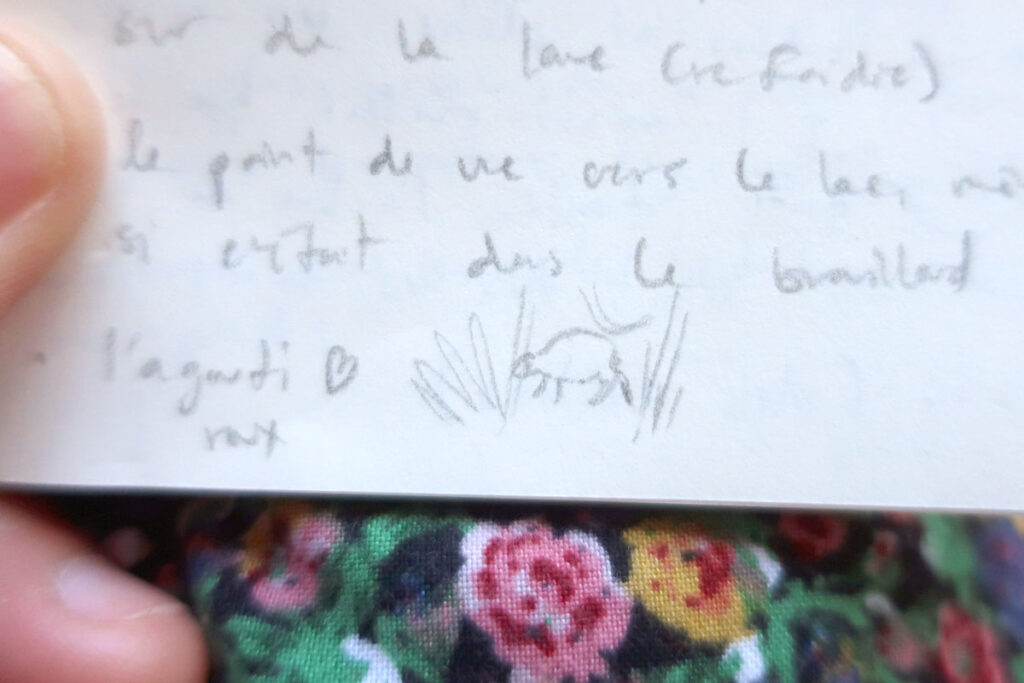 sur de la lave (refroidie)
le point de vue vers le lac,
si c'était dans le brouillard
l'agouti ♡
roux